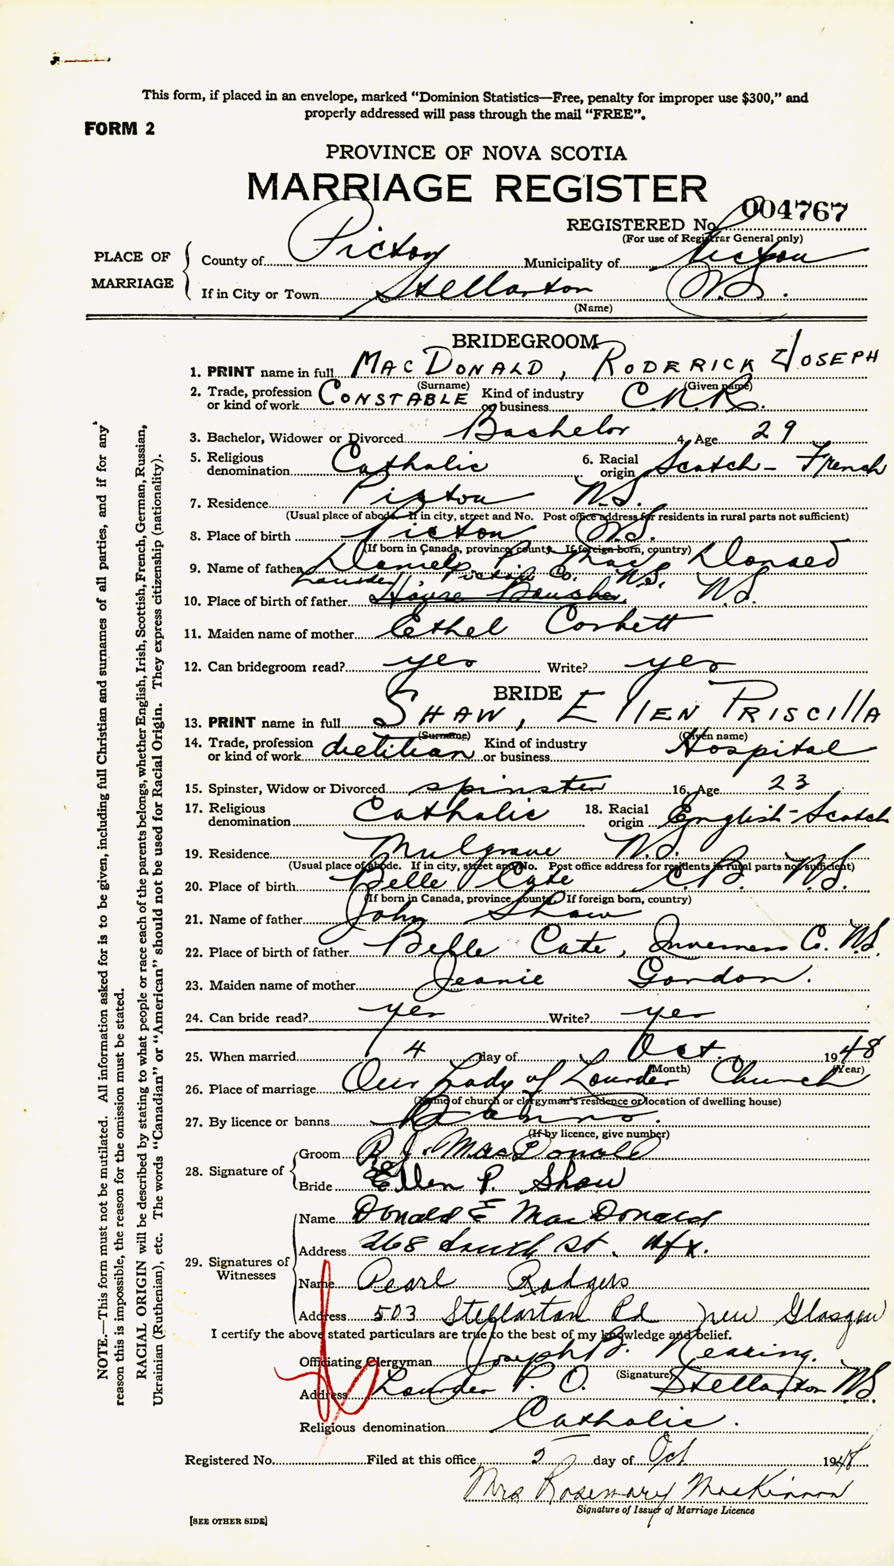 This form, if placed in an envelope, marked “Dominion Statistics—Free, penalty for improper use $300,” and
properly addressed will pass through the mail “FREE”.
FORM 2
PROVINCE OF NOVA SCOTIA
MARRIAGE REGISTER
REGISTERED No. 004767
(For use of Registrar General only)
PLACE OF MARRIAGE
County of Pictou Municipality of Pictou
If in City or Town Stellarton N.S.
(Name)
BRIDEGROOM
1. PRINT name in full MACDONALD, RODERICK JOSEPH
(Surname) (Given name)
2. Trade, profession or kind of work CONSTABLE Kind of industry or business C.N.R.
3. Bachelor, Widower or Divorced Bachelor 4. Age 29
5. Religious denomination Catholic 6. Racial origin Scotch - French
7. Residence Pictou N.S.
(Usual place of abode. If in city, street and No. Post office address for residents in rural parts not sufficient)
8. Place of birth Pictou N.S.
(If born in Canada, province, county. If foreign born, country)
9. Name of father Daniel P. MacDonald
Pictou Co. N.S.
10. Place of birth of father N.S.
11. Maiden name of mother Ethel Corbett
12. Can bridegroom read? yes Write? yes
BRIDE
13. PRINT name in full SHAW, ELLEN PRISCILLA
(Surname) (Given name)
14. Trade, profession or kind of work dietitian Kind of industry or business Hospital
15. Spinster, Widow or Divorced spinster 16. Age 23
17. Religious denomination Catholic 18. Racial origin English-Scotch
19. Residence Mulgrave N.S.
(Usual place of abode. If in city, street and No. Post office address for residents in rural parts not sufficient)
20. Place of birth Belle Cote C.B. N.S.
(If born in Canada, province, county. If foreign born, country)
21. Name of father John Shaw
22. Place of birth of father Belle Cote, Inverness Co. N.S.
23. Maiden name of mother Jeanie Gordon.
24. Can bride read? yes Write? yes
25. When married 4 day of Oct. 1948
(Month) (Year)
26. Place of marriage Our Lady of Lourdes Church
(Name of church or clergyman's residence or location of dwelling house)
27. By licence or banns Banns.
(If by licence, give number)
28. Signature of
Groom R. J. MacDonald
Bride Ellen P. Shaw
29. Signatures of Witnesses
Name Donald E MacDonald
Address 268 South St. Hfx.
Name Pearl Rodgers
Address 503 Stellarton Rd New Glasgow
I certify the above stated particulars are true to the best of my knowledge and belief.
Officiating Clergyman Joseph B. Nearing.
(Signature)
Address Lourdes P.O. Stellarton N.S.
Religious denomination Catholic.
Registered No. Filed at this office 5 day of Oct 1948
Mrs Rosemary MacKinnon
Signature of Issuer of Marriage Licence
[SEE OTHER SIDE]
NOTE.—This form must not be mutilated. All information asked for is to be given, including full Christian and surnames of all parties, and if for any
reason this is impossible, the reason for the omission must be stated.
RACIAL ORIGIN will be described by stating to what people or race each of the parents belongs, whether English, Irish, Scottish, French, German, Russian,
Ukrainian (Ruthenian), etc. The words “Canadian” or “American” should not be used for Racial Origin. They express citizenship (nationality).